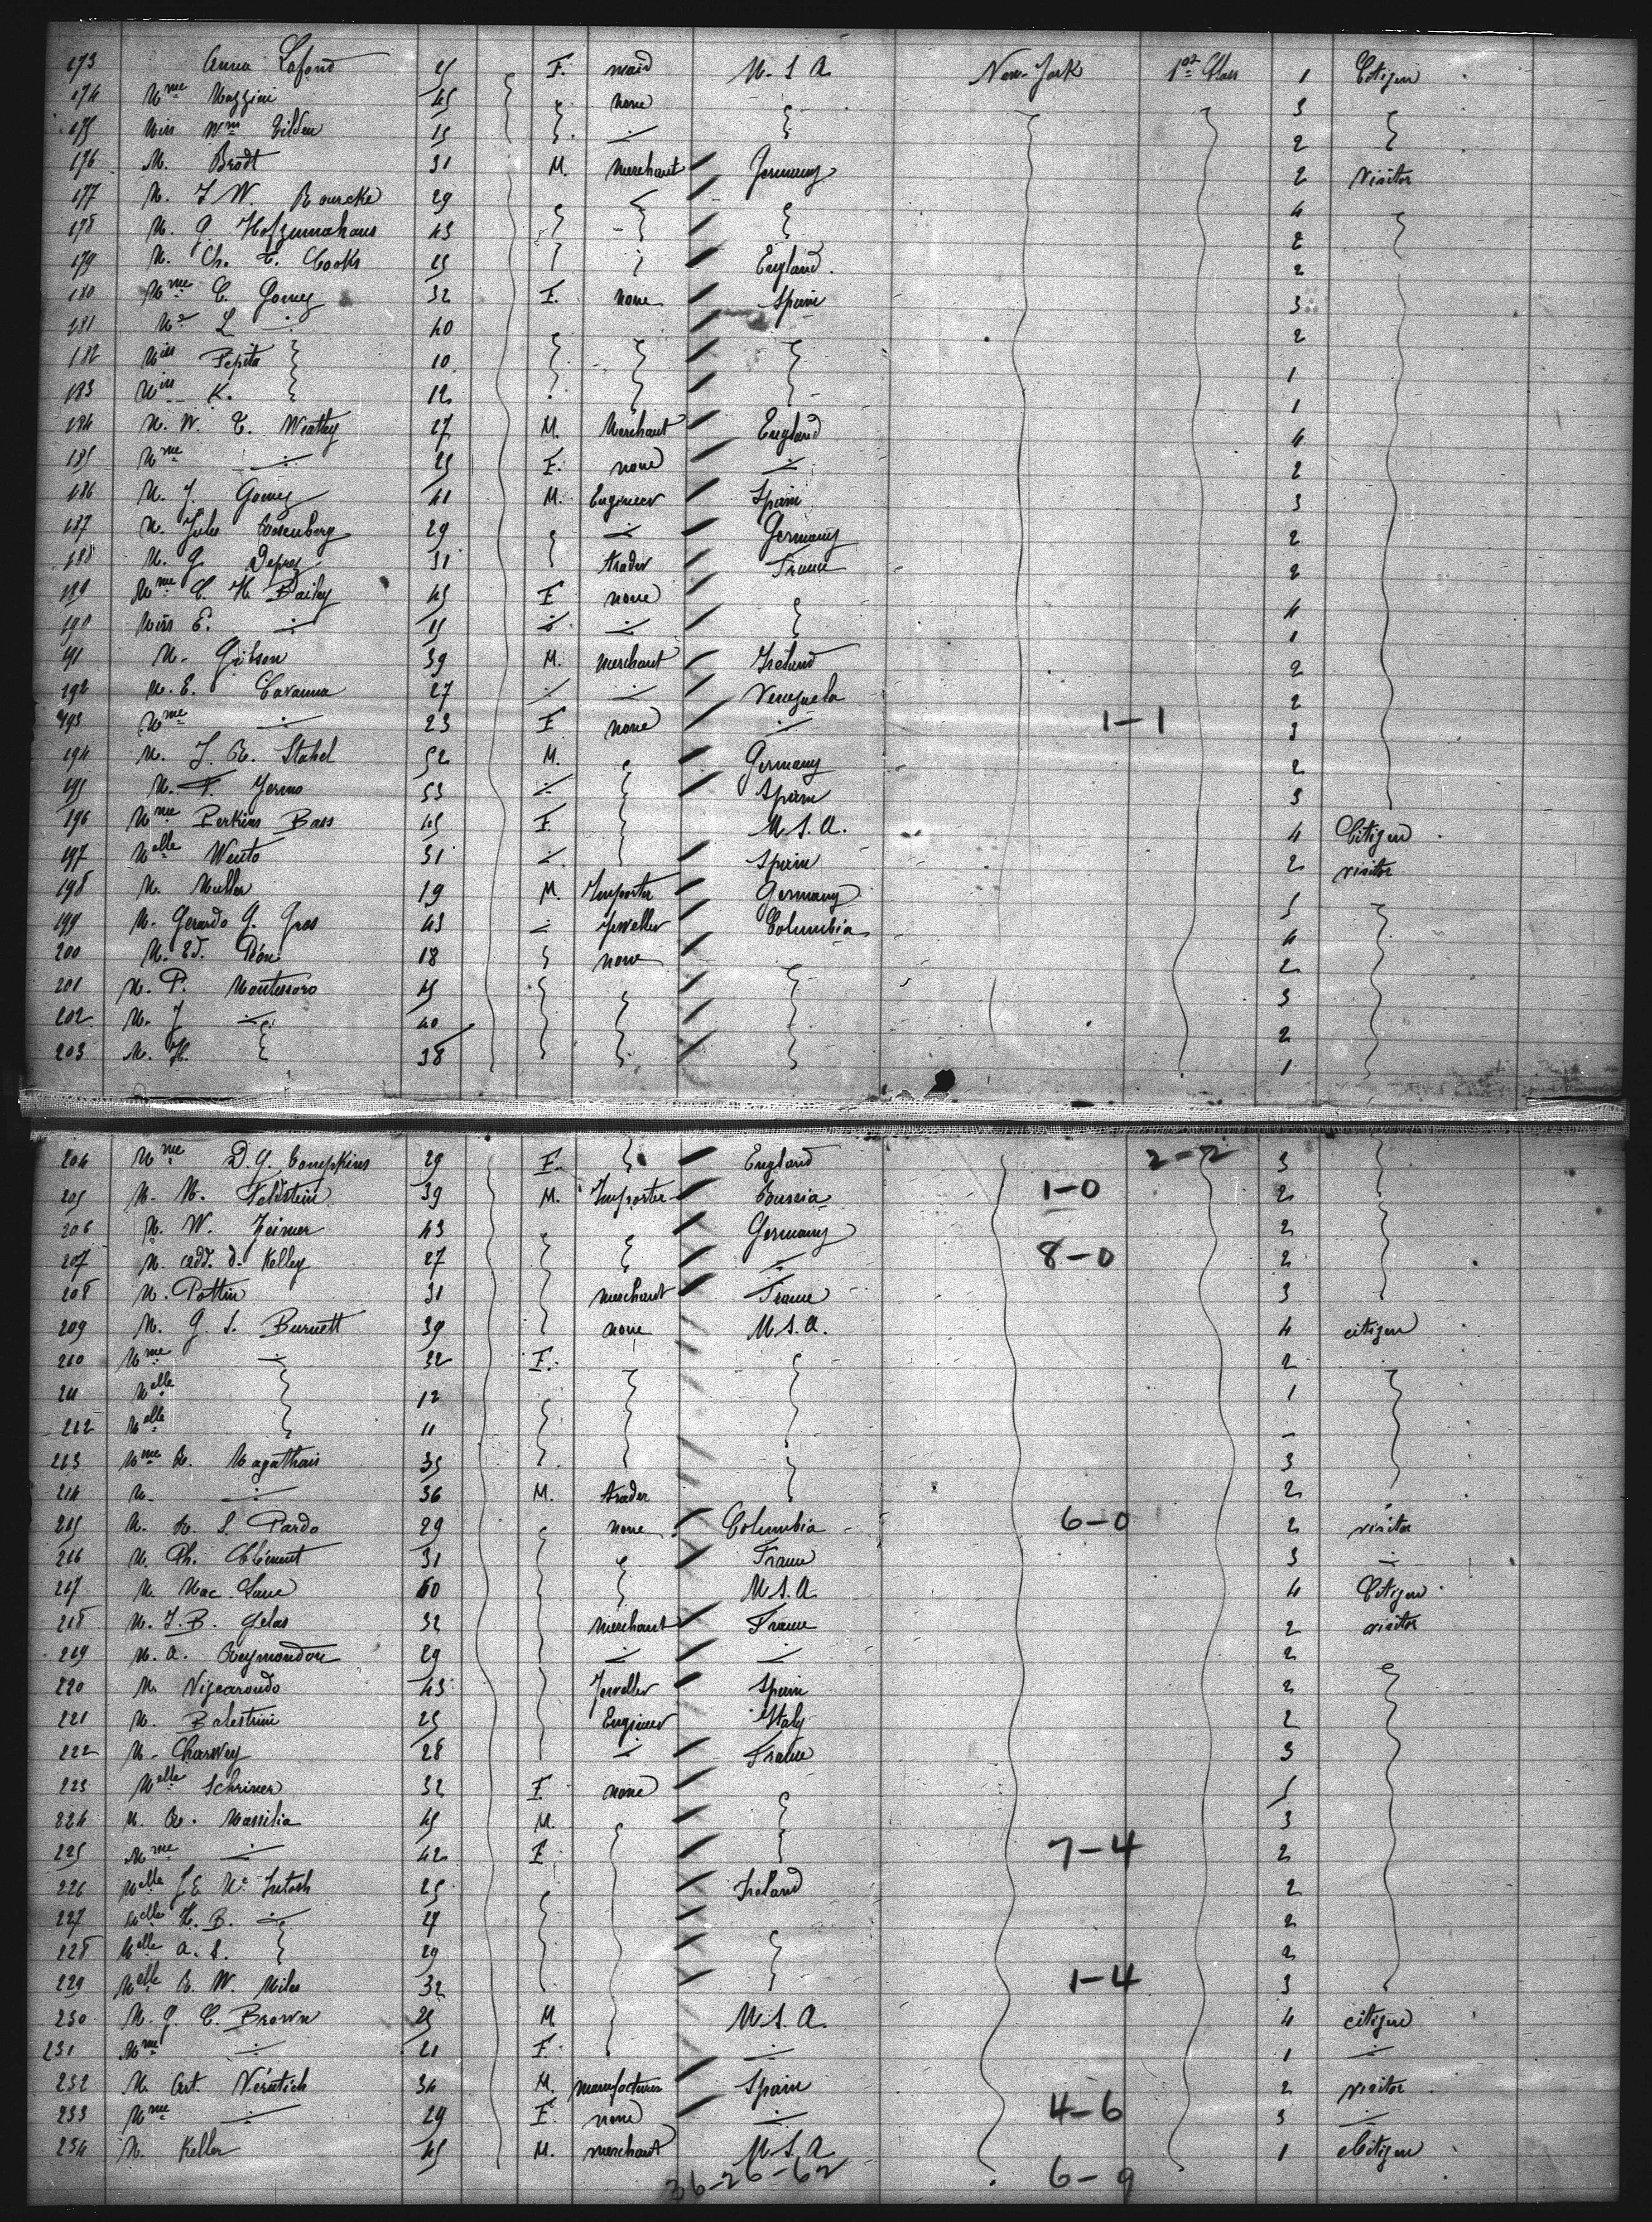 173 Anna Lafond 25 F. maid U.S.A. New-York 1st Class 1 Citizen
174 Mme Mazzini 45 none 3
175 Miss Wm Tilden 15 2
176 M. Brodt 31 M. merchant Germany 2 Visitor
177 M. J W. Bourcke 29 4
178 M. G. 43 2
179 M. Ch. E. Cooks 25 England 2
180 Mme C. Gomez 32 F. none Spain 3
181 Me L 40 2
182 Miss Pepita 10 1
183 Miss K. 12 1
184 M. W. E. Weatley 27 M. Merchant England 4
185 Mme 25 F. none 2
186 M. J. Gomez 41 M. Engineer Spain 3
187 M. Jules Rosenberg 29 Germany 2
188 M. G. Deprez 31 trader France 2
189 Mme C. H. Bailey 45 F none 4
190 Miss E. 15 1
191 M. Gibson 39 M. merchant Ireland 2
192 M. E. Cavanna 27 Venezuela 2
193 Mme 23 F none 1-1 3
194 M. J. R. Stahel 52 M. Germany 2
195 M. F. Yermo 53 Spain 3
196 Mme Perkins Bass 45 F. U.S.A. 4 Citizen
197 Melle Wento 31 Spain 2 visitor
198 M. Muller 19 M. Importer Germany
199 M. Gerardo G. Gros 43 Jeweller Columbia 4
200 M. Ed. Péon 18 none 2
201 M. P. Montessoro 45 3
202 M. J 40 2
203 M. H. 38 1
204 Mme D.G. Tompkins 29 F. England 2-2 3
205 M. M. Feldstein 39 M. Importer Russia 1-0 2
206 M. W. Zeimer 43 Germany 2
207 M. Add. d. Kelley 27 8-0 2
208 M. Pottin 31 merchant France 3
209 M. G. S. Burnett 39 none U.S.A. 4 citizen
210 Mme 32 F. 2
211 Melle 12 1
212 Melle 11 -
213 Mme R. Magathais 35 3
214 M. 36 M. trader 2
215 M. R. S. Pardo 29 none Columbia 6-0 2 visitor
216 M. Ph. Clément 31 France 3
217 M. Mac. Lane 60 U.S.A. 4 Citizen
218 M. J. B. Gelas 32 merchant France 2 visitor
219 M. A. Reymondon 29 2
220 M. Vizcarondo 43 Jeweller Spain 2
221 M. Balestrini 25 Engineer Italy 2
222 M. Charvey 28 France 3
223 Melle Schriner 32 F. none 1
224 M. R. Massilia 45 M. 3
225 Mme 42 F 7-4 2
226 Melle J E Mc Intosh 25 Ireland 2
227 Melle H. B. 27 2
228 Melle A. S. 29 2
229 Melle R. W. Miles 32 1-4 3
230 M. G. C. Brown 25 M U.S.A. 4 citizen
231 Mme 21 F. 1
232 M. Art. Verntich 34 M. manufacturer Spain 2 visitor
233 Mme 29 F. none 4-6 3
234 M. Keller 45 M. merchant U.S.A 1 Citizen
36-26-62 6-9